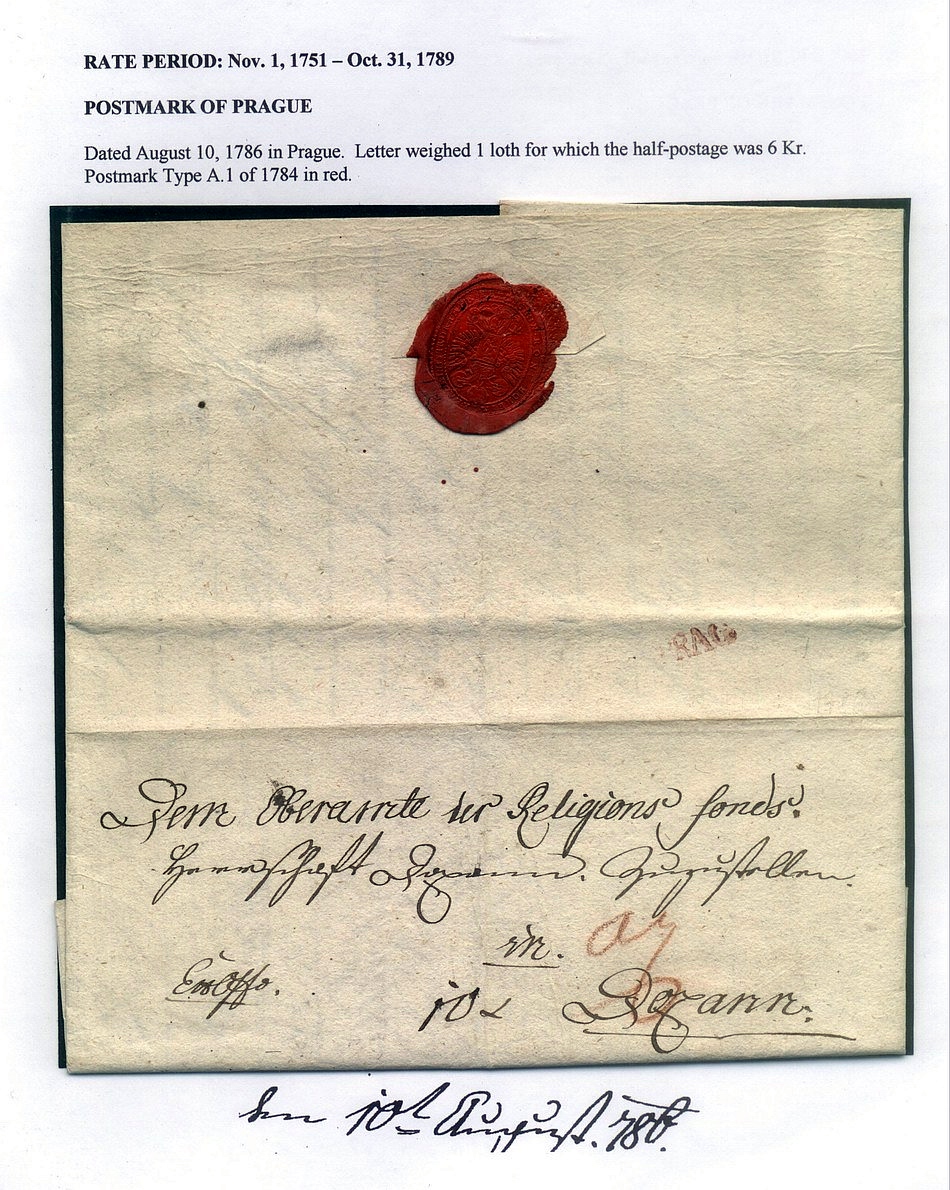 RATE PERIOD: Nov. 1, 1751 – Oct. 31, 1789
POSTMARK OF PRAGUE
Dated August 10, 1786 in Prague. Letter weighed 1 loth for which the half-postage was 6 Kr.
Postmark Type A.1 of 1784 in red.
PRAG.
Dem Oberamte der Religions fonds.
Herrschaft Doxann. Zuzustellen.
in.
Exoffo.
Doxann.
den 10t August. 786.